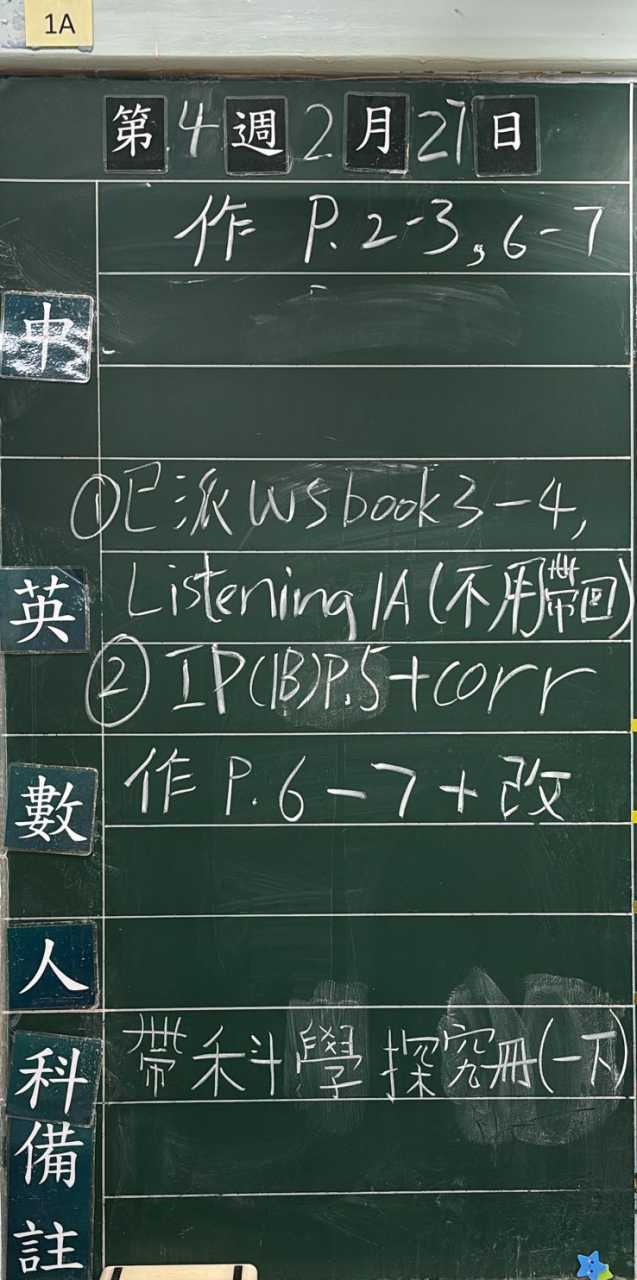 1A
第4週2月27日
作 P.2-3,6-7
中
①已派 WS book 3-4,
英 Listening 1A (不用帶回)
②IP(1B)P.5+corr
作 P.6-7+改
數
人
帶科學探究冊(一下)
科
備
註